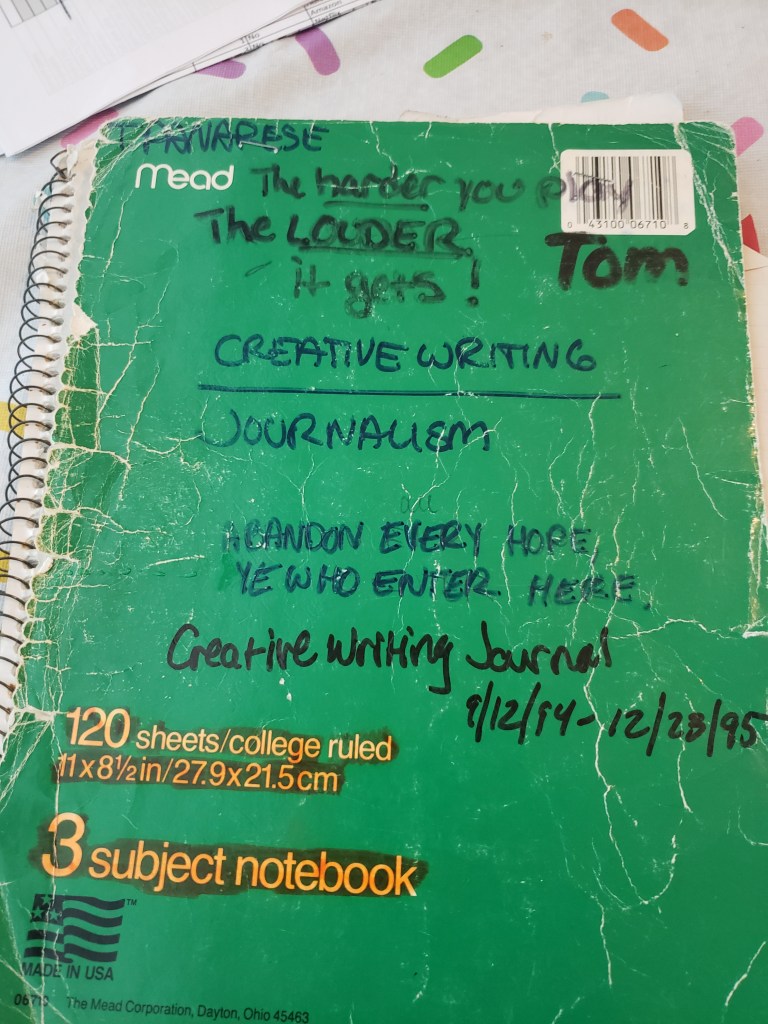 T PANARESE
Mead
The harder you play
The LOUDER
it gets!
0 43100 06710 8
Tom
CREATIVE WRITING
JOURNALISM
ABANDON EVERY HOPE,
YE WHO ENTER HERE.
Creative Writing Journal
9/12/94 - 12/28/95
120 sheets/college ruled
11x8½in/27.9x21.5cm
3 subject notebook
TM
MADE IN USA
06710 The Mead Corporation, Dayton, Ohio 45463